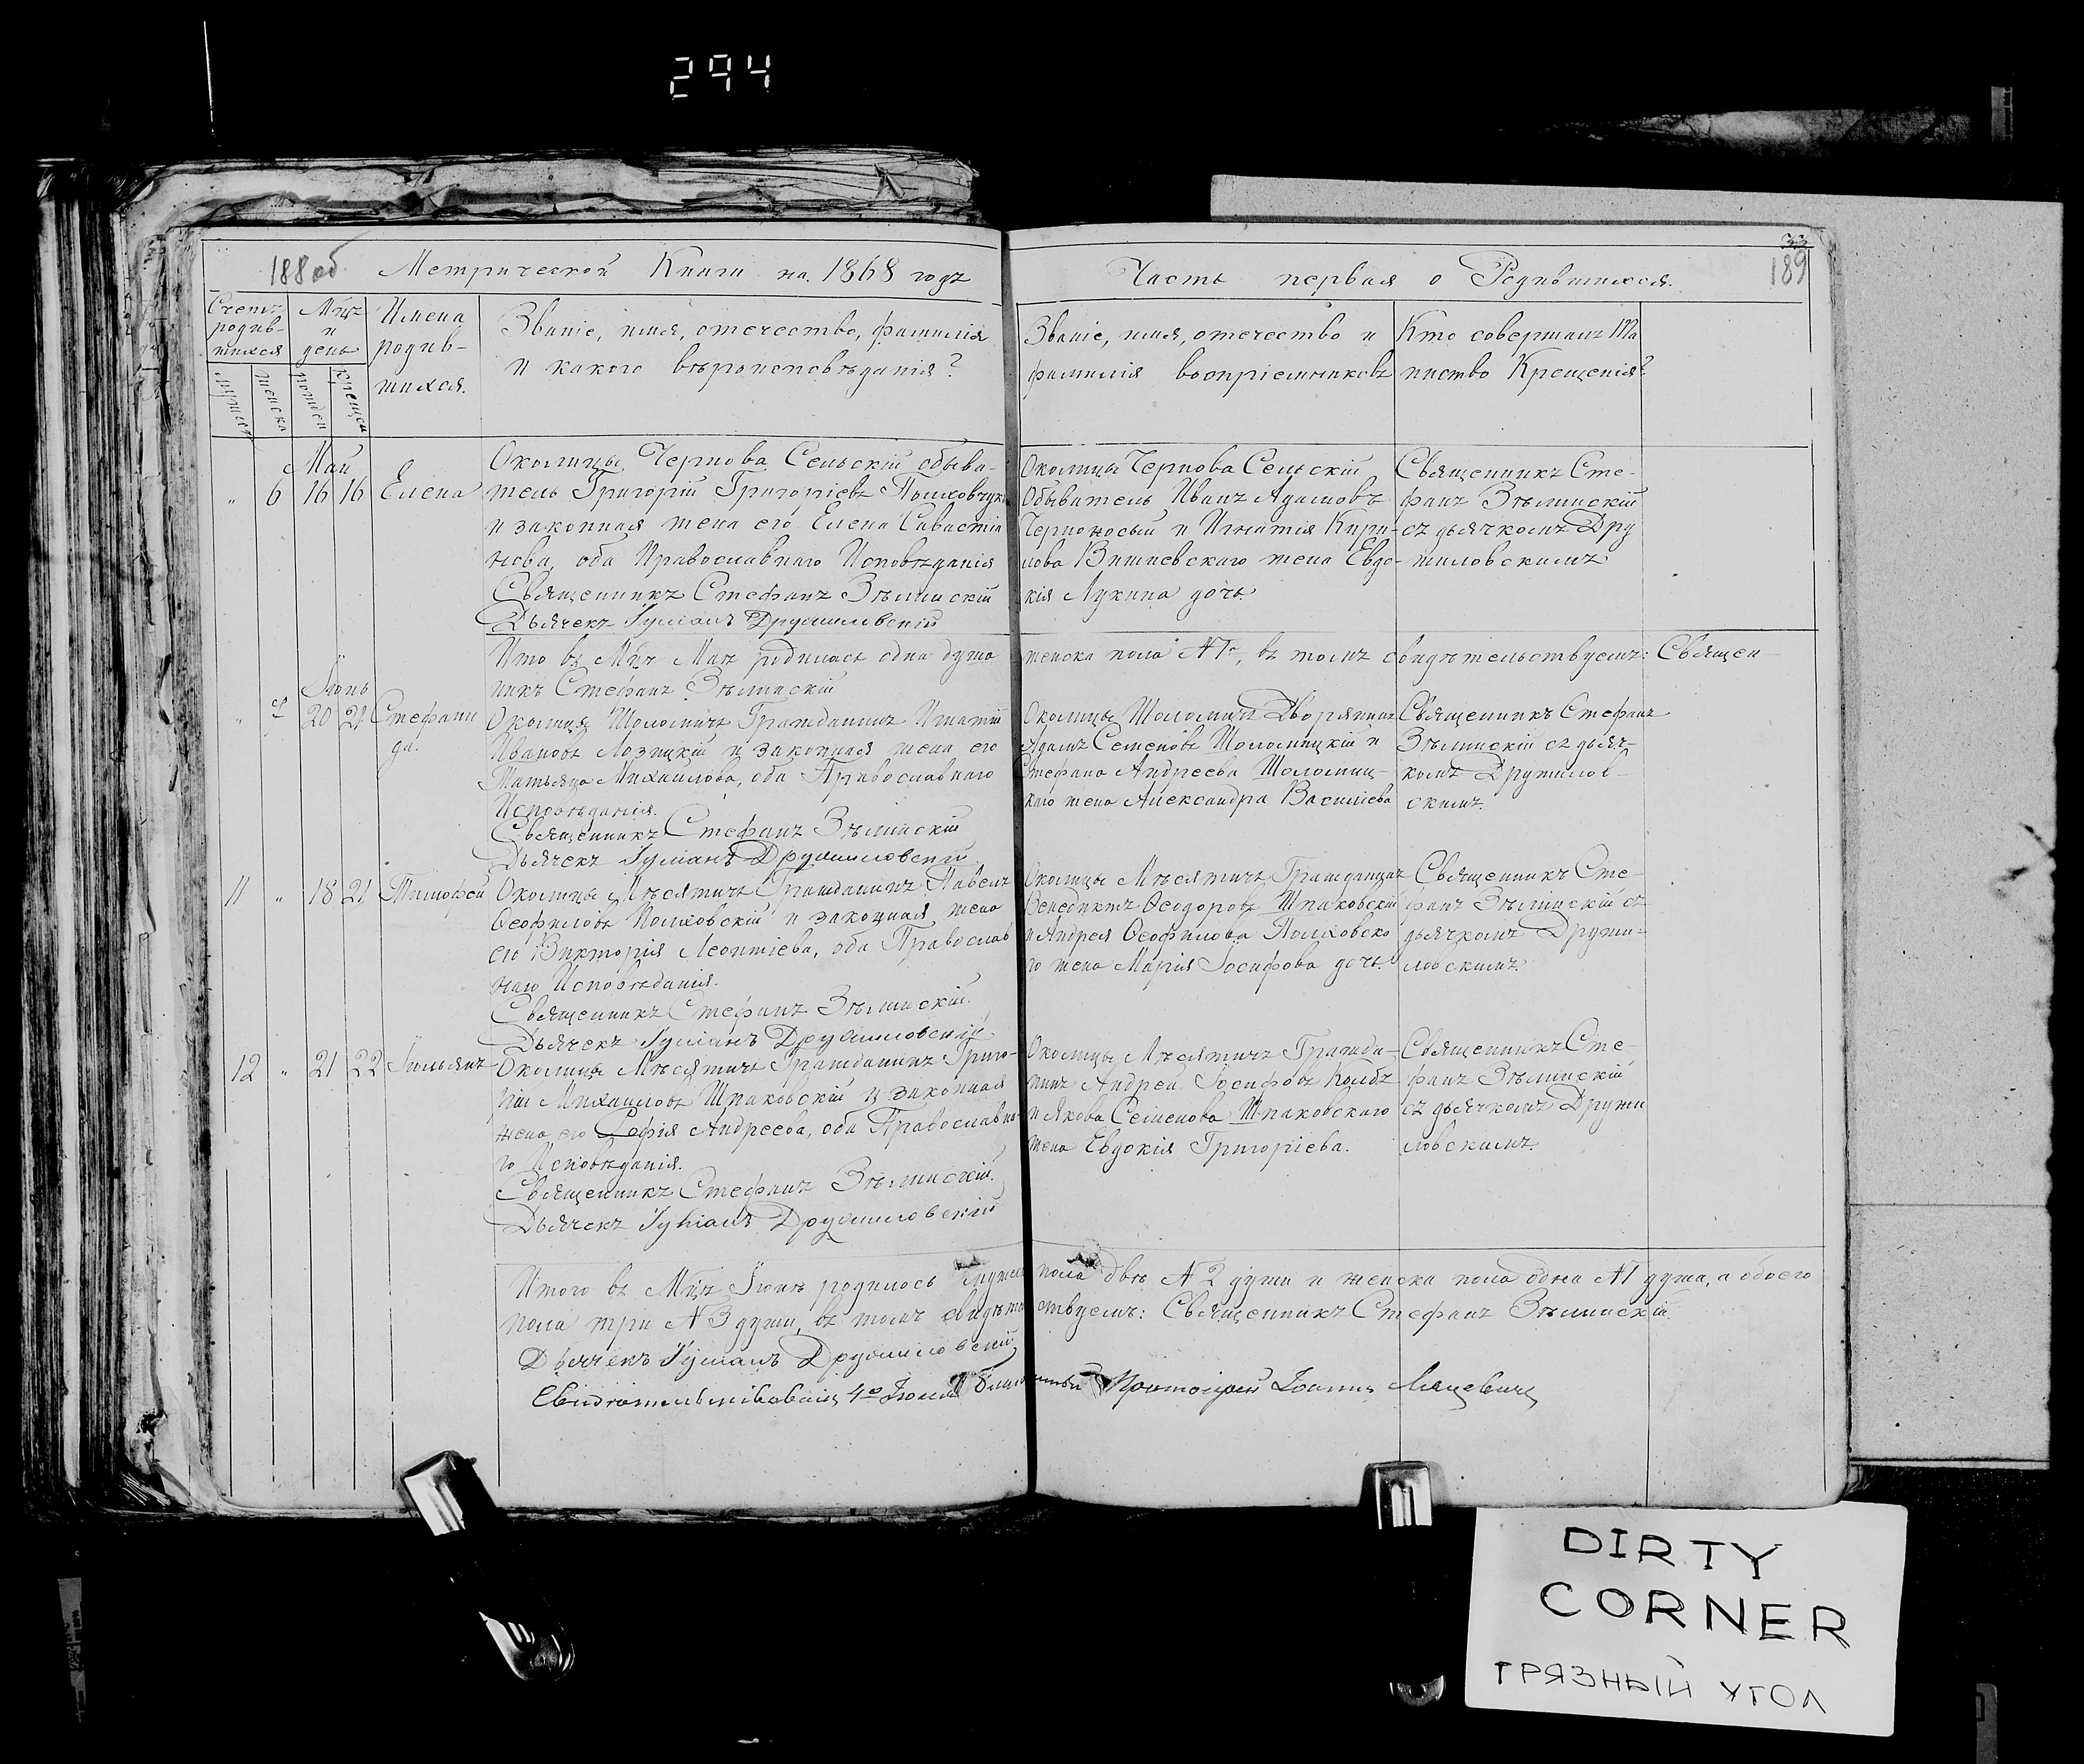 294
188 об Метрической Книги на 1868 годъ
Часть первая о Родившихся.
33
189
Счетъ родив-
шихся
Мцъ
и
день
Имена
родив-
шихся.
Званіе, имя, отечество, фамилія
и какого вѣроисповѣданія?
Званіе, имя, отечество и
фамилія воспріемниковъ
Кто совершалъ Та
инство Крещенія?
Май
" 6 16 16 Елена
Околицы Чернова Сельскій обыва-
тель Григорій Григоріевъ
и законная жена его Елена Савастія
нова, оба Православнаго Исповѣданія
Священникъ Стефанъ Зѣлинскій
Дьячекъ Іуліанъ Дружиловскій
Околицы Чернова Сельскій
Обыватель Иванъ Адамовъ
Черноносый и Игнатія Кири-
лова Вишневскаго жена Евдо-
кія Лукина дочь.
Священникъ Сте-
фанъ Зѣлинскій
съ дьячкомъ Дру
жиловскимъ
Ито въ Мцъ Маѣ родилась одна душа
женска пола №1, въ томъ свидѣтельствуемъ: Священ-
никъ Стефанъ Зѣлинскій
Іюнь
" 7 20 21 Стефани
да.
Околицы Шоломичъ Гражданинъ Игнатій
Ивановъ Лозицкій и законная жена его
Татьяна Михаилова, оба Православнаго
Исповѣданія.
Священникъ Стефанъ Зѣлинскій
Дьячекъ Іуліанъ Дружиловскій
Околицы Шоломичъ Дворянинъ
Адамъ Семеновъ Шоломицкій и
Стефана Андреева Шоломиц-
каго жена Александра Василіева
Священникъ Стефанъ
Зѣлинскій съ дьяч-
комъ Дружилов-
скимъ.
11 " 18 21 Тимофей
Околицы Мѣсятичъ Гражданинъ Павелъ
Ѳеофиловъ Полховскій и законная жена
его Викторія Леонтіева, оба Православ
наго Исповѣданія.
Священникъ Стефанъ Зѣлинскій.
Дьячекъ Іуліанъ Дружиловскій
Околицы Мѣсятичъ Гражданинъ
Венедиктъ Ѳеодоровъ Шпаковскій
и Андрея Ѳеофилова Полховско
го жена Марія Іосифова дочь.
Священникъ Сте-
фанъ Зѣлинскій съ
дьячкомъ Дружи-
ловскимъ.
12 " 21 22 Іюльянъ
Околицы Мѣсятичъ Гражданинъ Григо-
рій Михаиловъ Шпаковскій и законная
жена его Софія Андреева, оба Православна-
го Исповѣданія.
Священникъ Стефанъ Зѣлинскій.
Дьячекъ Іуліанъ Дружиловскій
Околицы Мѣсятичъ Гражда-
нинъ Андрей Іосифовъ Колбъ
и Якова Семенова Шпаковскаго
жена Евдокія Григоріева.
Священникъ Сте-
фанъ Зѣлинскій
съ дьячкомъ Дружи
ловскимъ.
Итого въ Мцѣ Іюнѣ родилось мужеск пола двѣ №2 души и женска пола одна №1 душа, а обоего
пола три №3 души, въ томъ свидѣтельствуемъ: Священникъ Стефанъ Зѣлинскій.
Дьячекъ Іуліанъ Дружиловскій
Свидѣтельствовавшій 4го Іюля Протоіерей Іоаннъ
DIRTY
CORNER
ГРЯЗНЫЙ УГОЛ